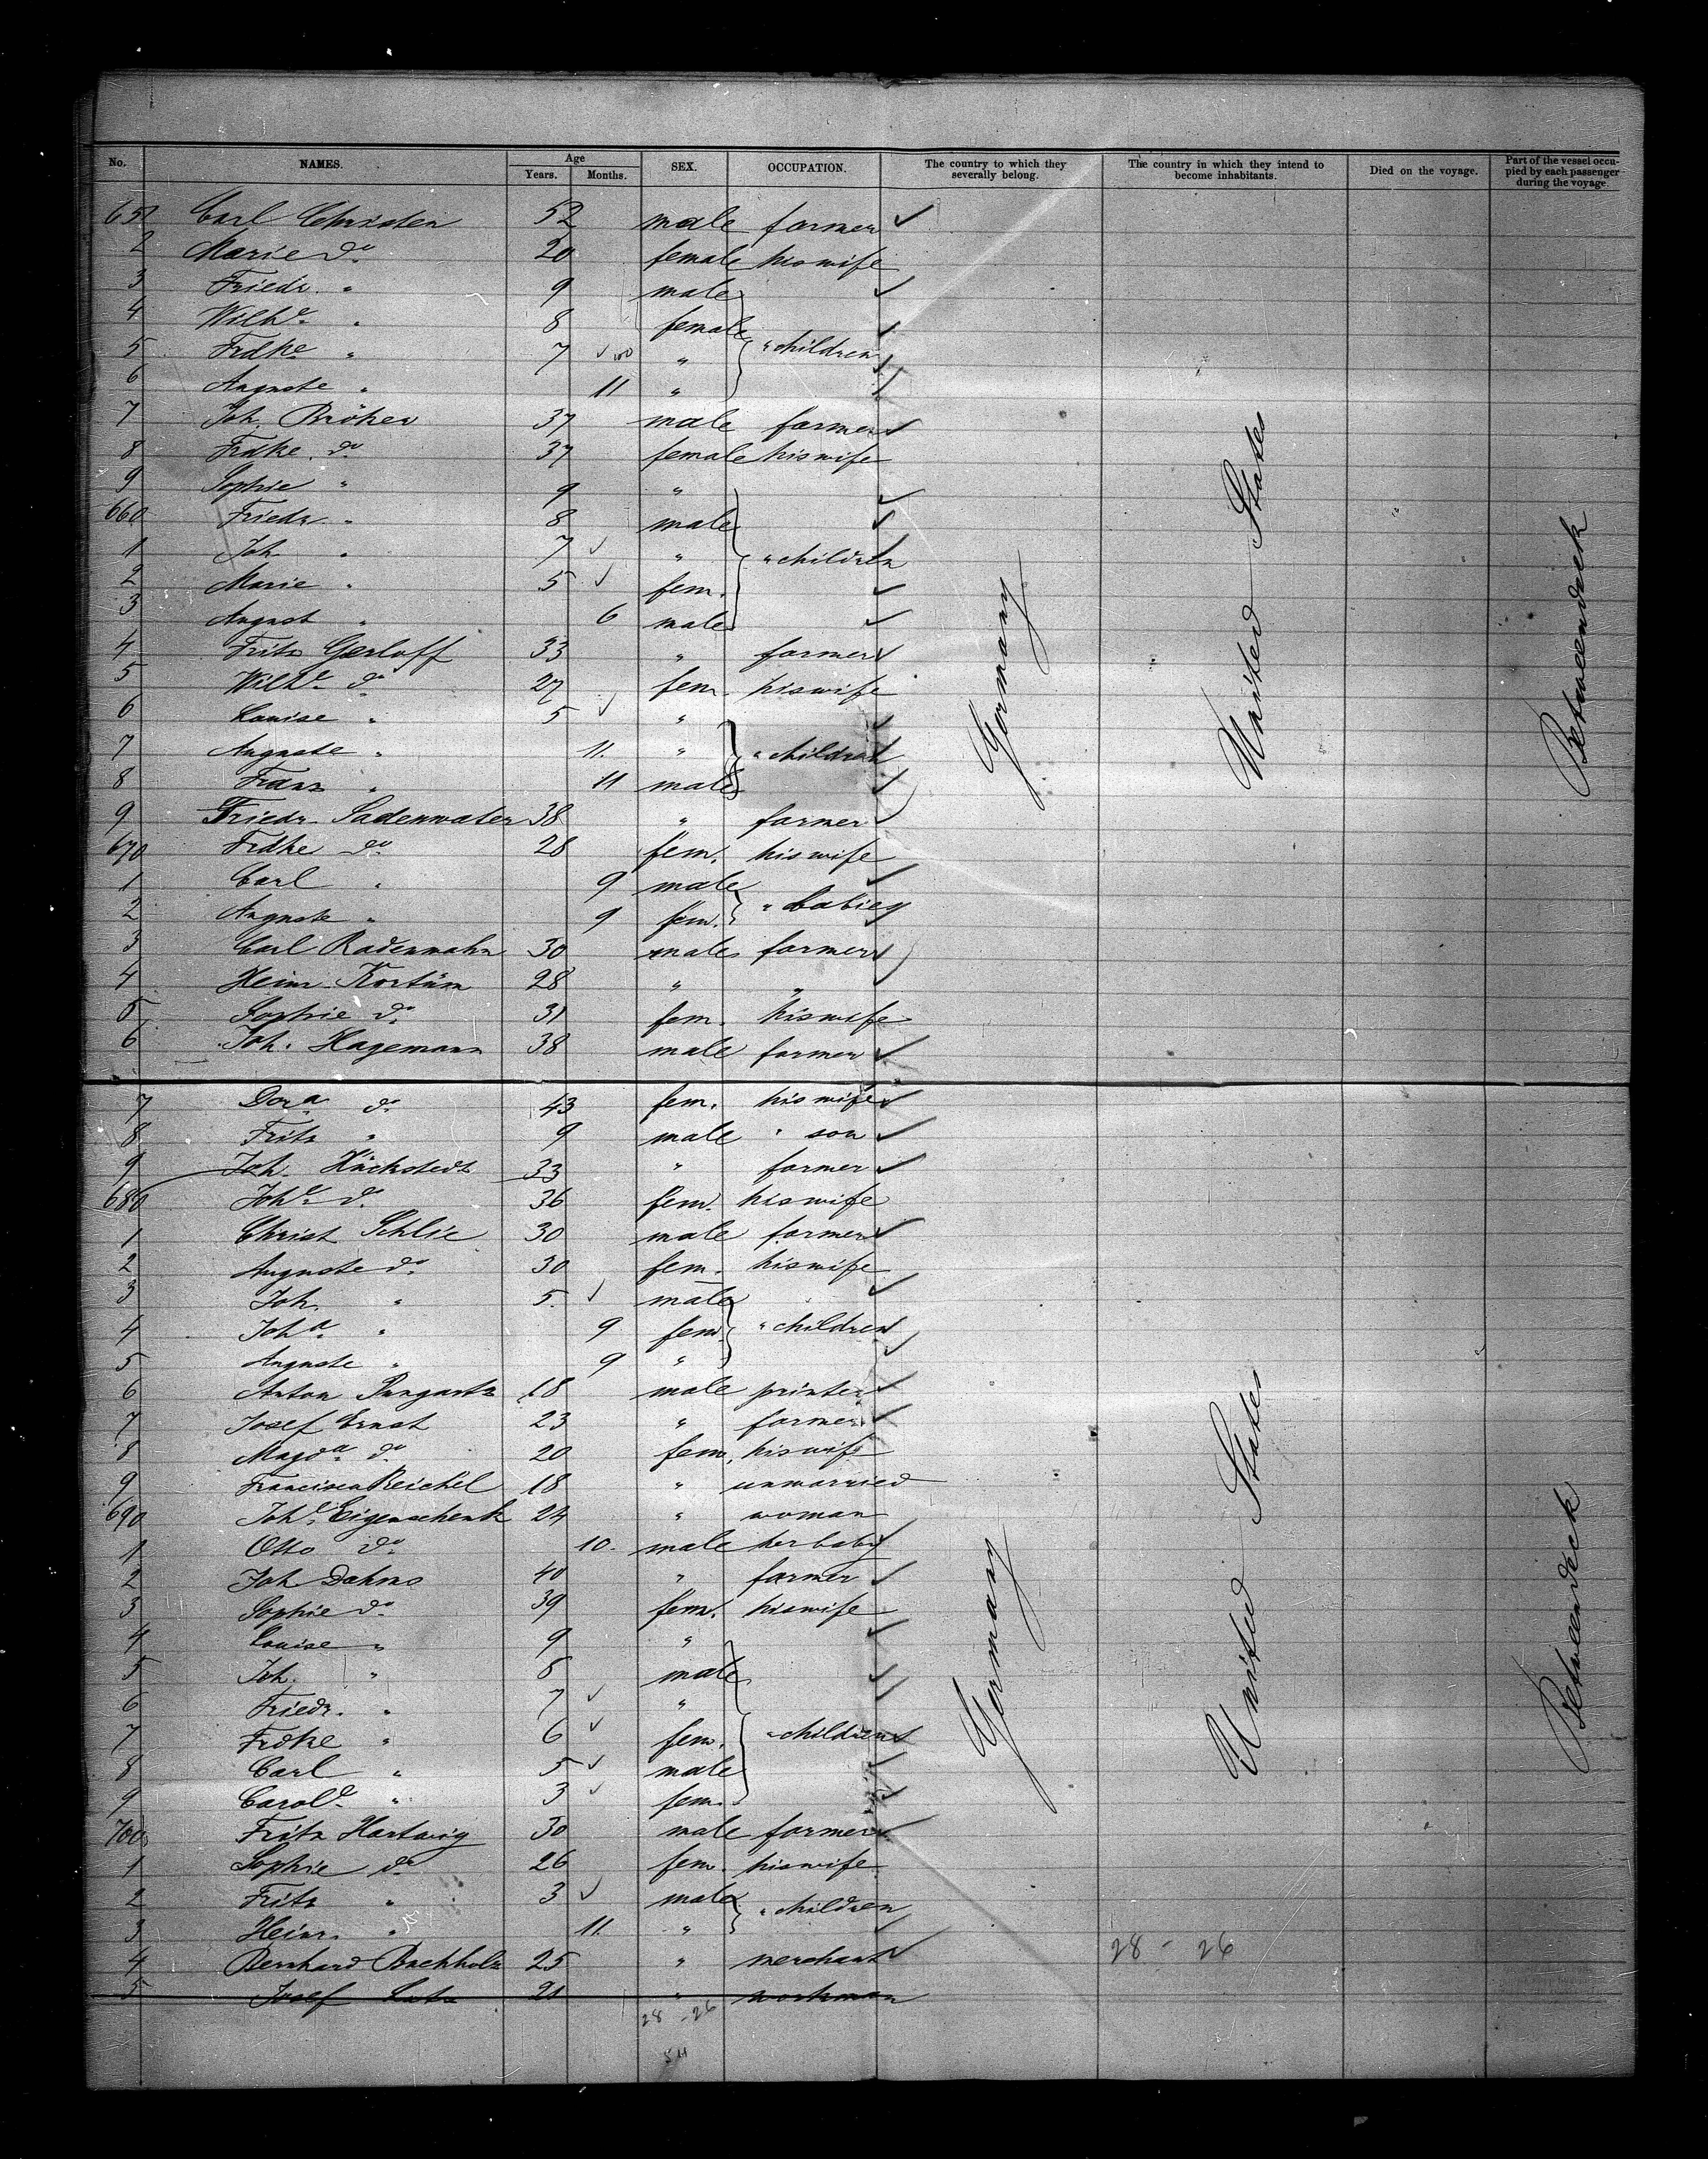 No. NAMES. Age Years. Months. SEX. OCCUPATION. The country to which they severally belong. The country in which they intend to become inhabitants. Died on the voyage. Part of the vessel occupied by each passenger during the voyage.
651 Carl Christen 52 male farmer
2 Marie do 20 female his wife
3 Friedr. " 9 male
4 Wilhe " 8 female
5 Frdke " 7 " " children
6 Auguste " 11 "
7 Joh. Bröker 37 male farmer
8 Frdke. do 37 female his wife
9 Sophie " 9 "
660 Friedr. " 8 male
1 Joh. " 7 " " children
2 Marie " 5 fem.
3 August " 6 male
4 Fritz Gerloff 33 " farmer
5 Wilhe do 27 fem. his wife
6 Louise " 5 "
7 Auguste " 11. " " children
8 Franz " 11 male
9 Friedr. Sadenwater 38 " farmer
670 Frdke do 28 fem. his wife
1 Carl " 9 male
2 Auguste " 9 fem. " babies
3 Carl Radenmahn 30 male farmer
4 Heinr. Kortüm 28 " "
5 Sophie do 31 fem. his wife
6 Joh. Hagemann 38 male farmer
7 Dora do 43 fem. his wife
8 Fritz " 9 male " son
9 Joh. Hückstedt 33 " farmer
680 Johe do 36 fem. his wife
1 Christ Schlie 30 male farmer
2 Auguste do 30 fem. his wife
3 Joh. " 5. male
4 Joha " 9 fem. " children
5 Auguste " 9 "
6 Anton 18 male printer
7 Josef Ernst 23 " farmer
8 Magda do 20 fem. his wife
9 Francisca Reichel 18 " unmarried
690 Johe Eigenschenk 24 " woman
1 Otto do 10. male her baby
2 Joh Dahms 40 " farmer
3 Sophie do 39 fem. his wife
4 Louise " 9 "
5 Joh. " 8 male
6 Friedr. " 7 "
7 Frdke " 6 fem. " children
8 Carl " 5 male
9 Carole " 3 fem.
700 Fritz Hartwig 30 male farmer
1 Sophie do 26 fem. his wife
2 Fritz " 3 male " children
3 Heinr. " 11. "
4 Bernhard Buchholz 25 " merchant
5 Josef Lutz 21 " workman
Germany
United States
Betweendeck
Germany
United States
Betweendeck
28 - 26
28 - 26
54